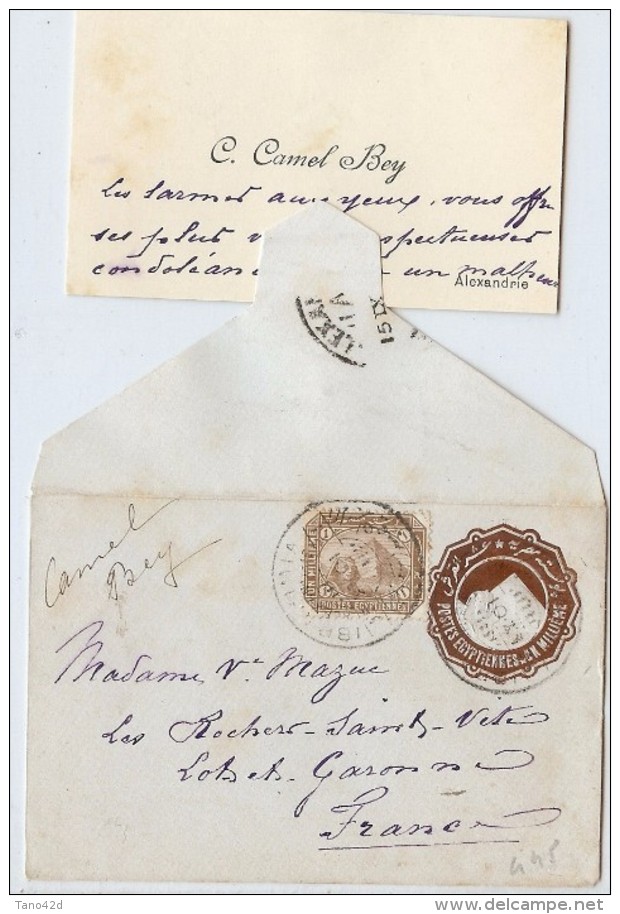 C. Camel Bey
les larmes aux yeux, vous offre
ses plus
condoléan un malheur
Alexandrie
15 IX
Camel
Bey
1
UN MILLIEME
POSTES EGYPTIENNES
POSTES EGYPTIENNES UN MILLIEME
Madame Ve Mazuc
Les Rochers-Saint-Vite
Lot-et-Garonne
France
Tano42d